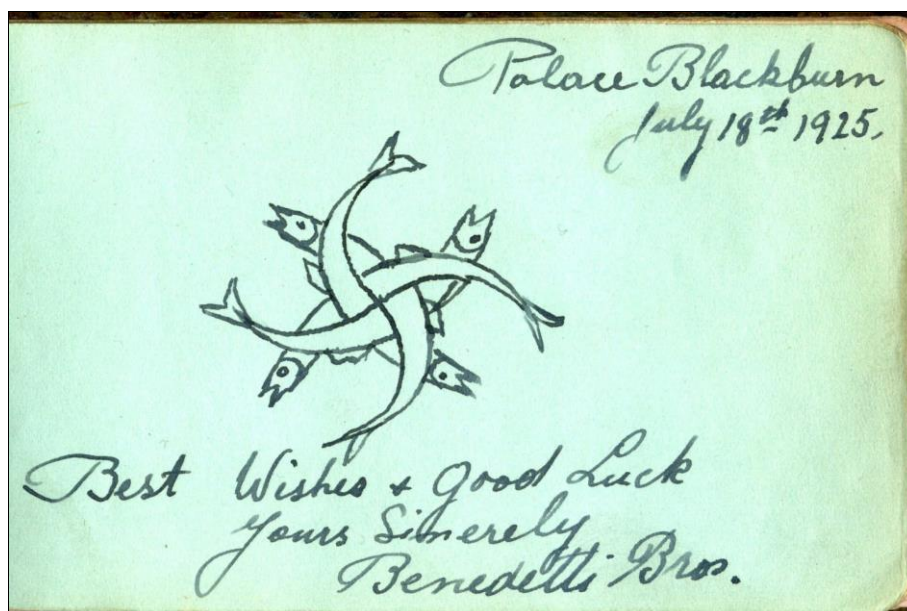 Palace Blackburn
July 18th 1925.
Best Wishes + Good Luck
Yours Sinerely
Benedetti Bros.